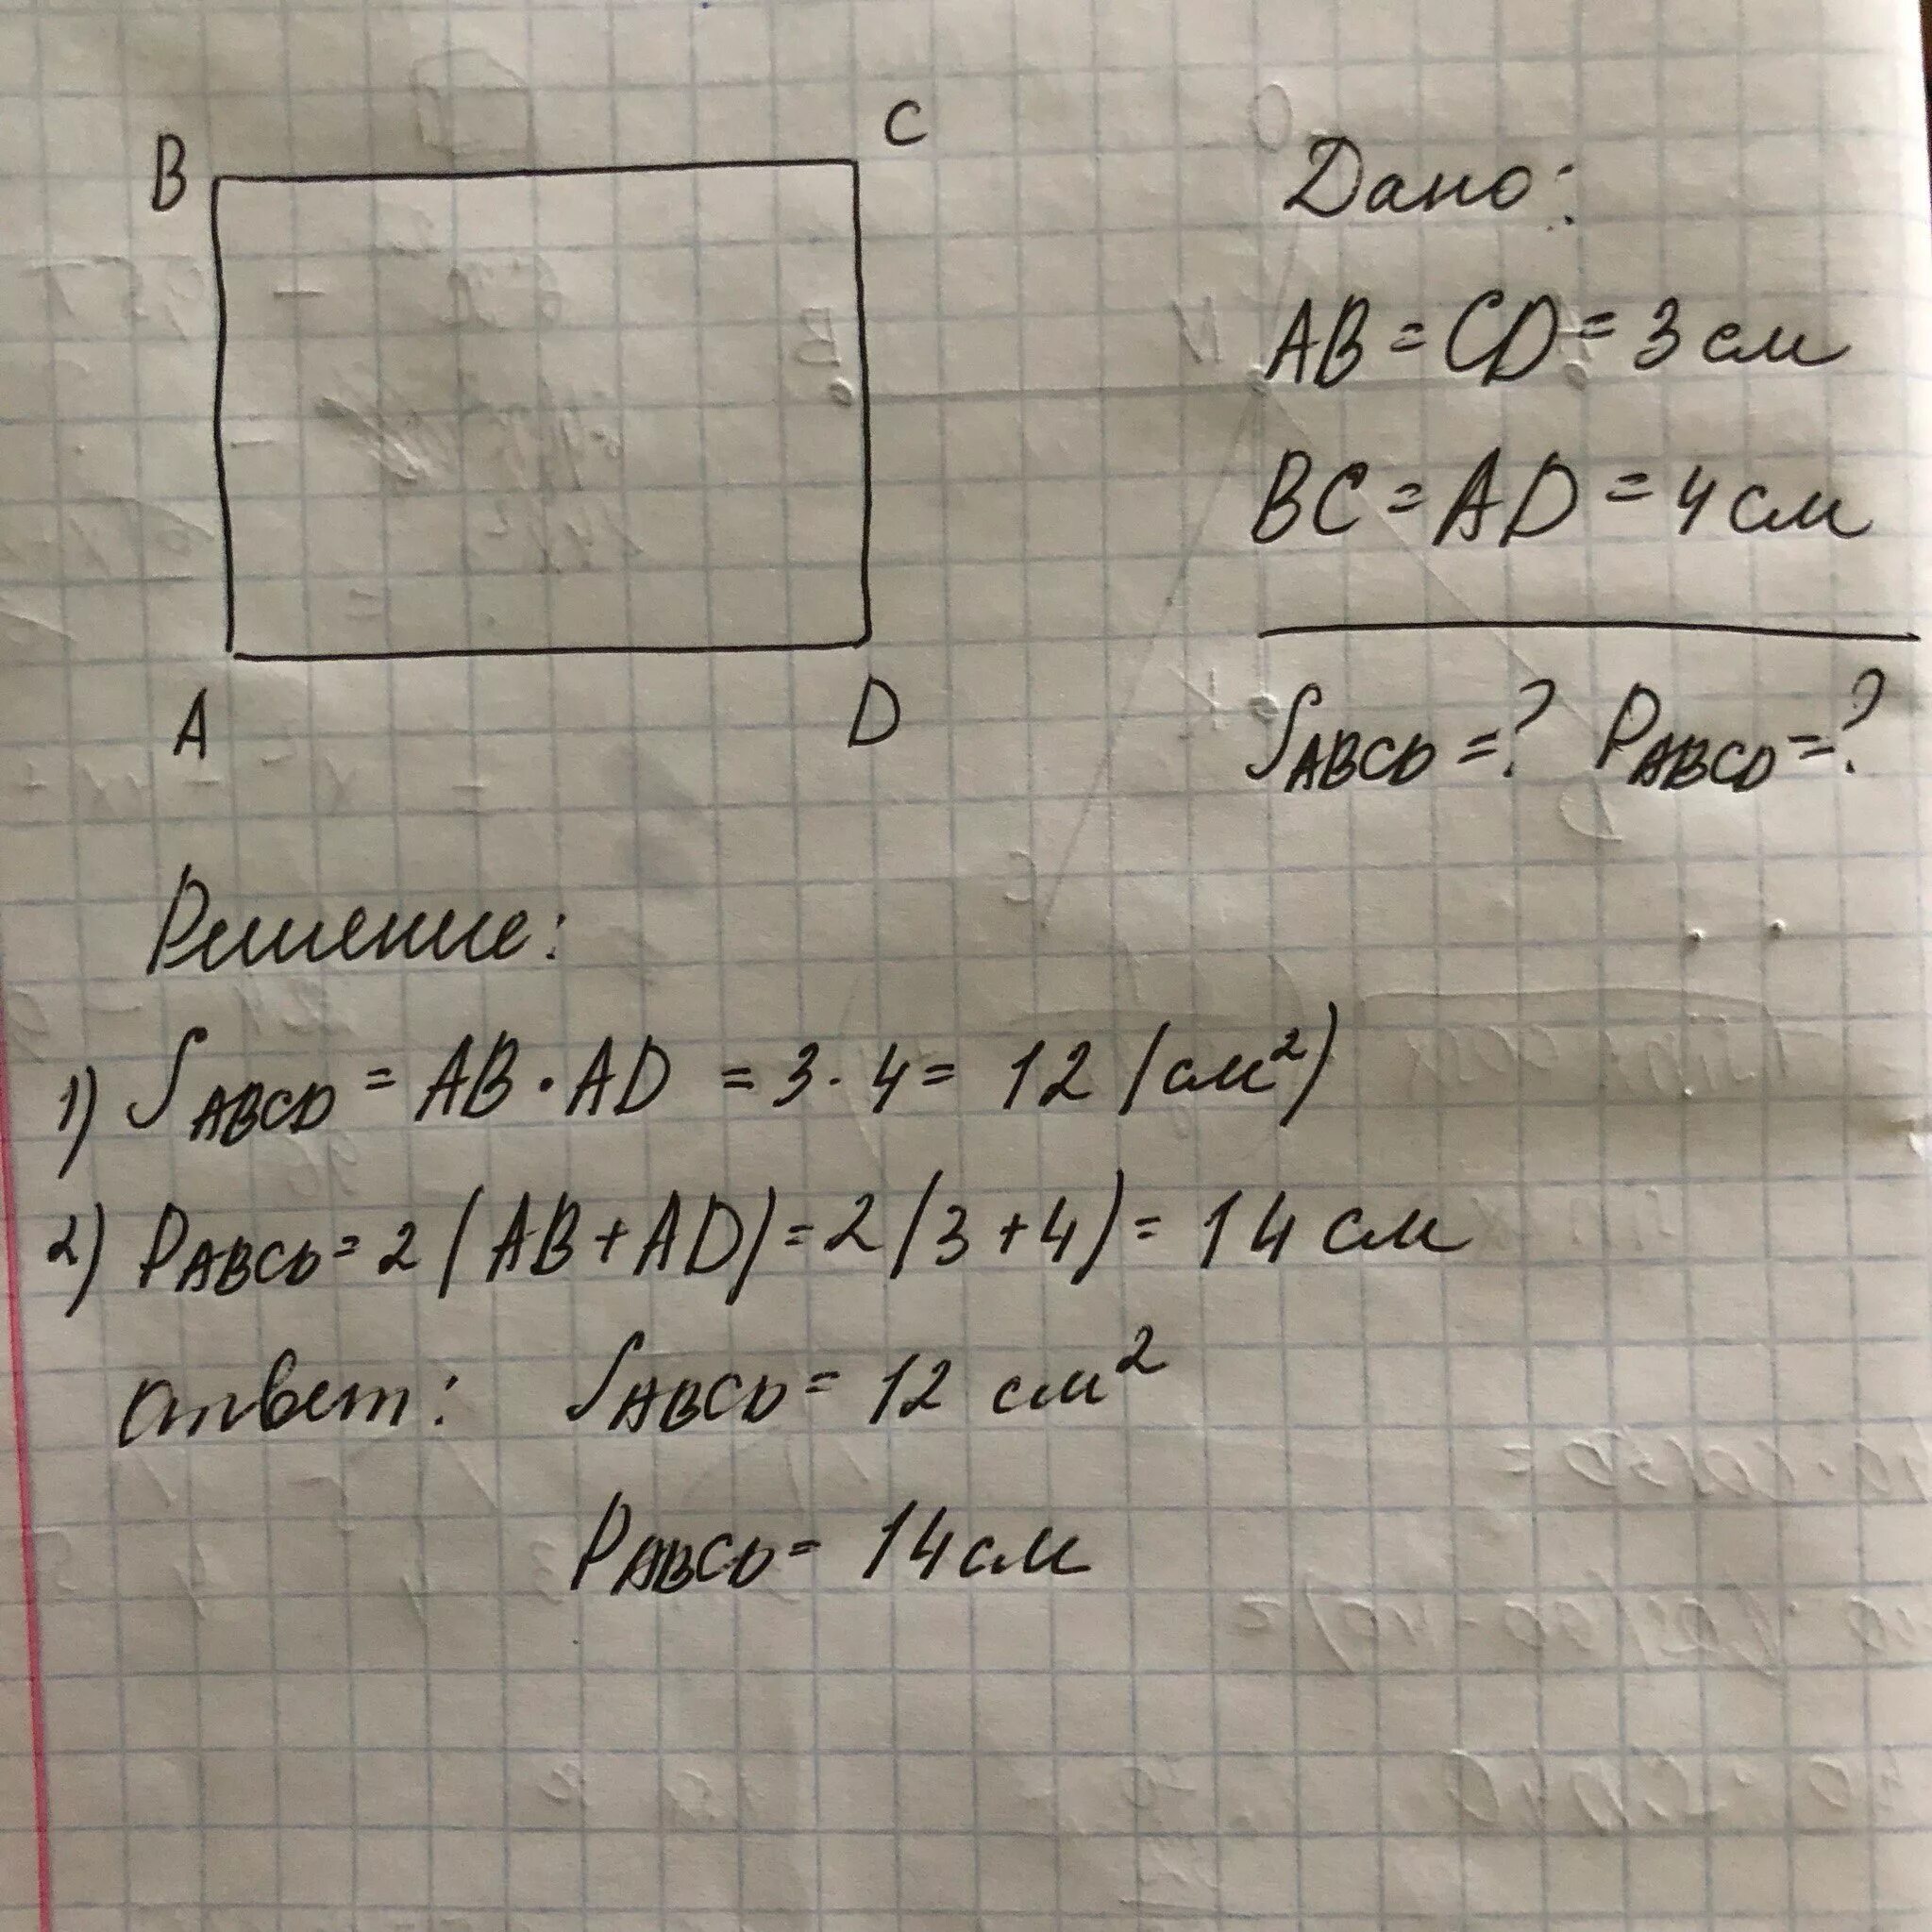 B
C
A
D
Дано:
AB = CD = 3 см
BC = AD = 4 см
S ABCD = ? P ABCD = ?
Решение:
1) S ABCD = AB · AD = 3 · 4 = 12 (см²)
2) P ABCD = 2 (AB + AD) = 2 (3 + 4) = 14 см
Ответ: S ABCD = 12 см²
P ABCD = 14 см